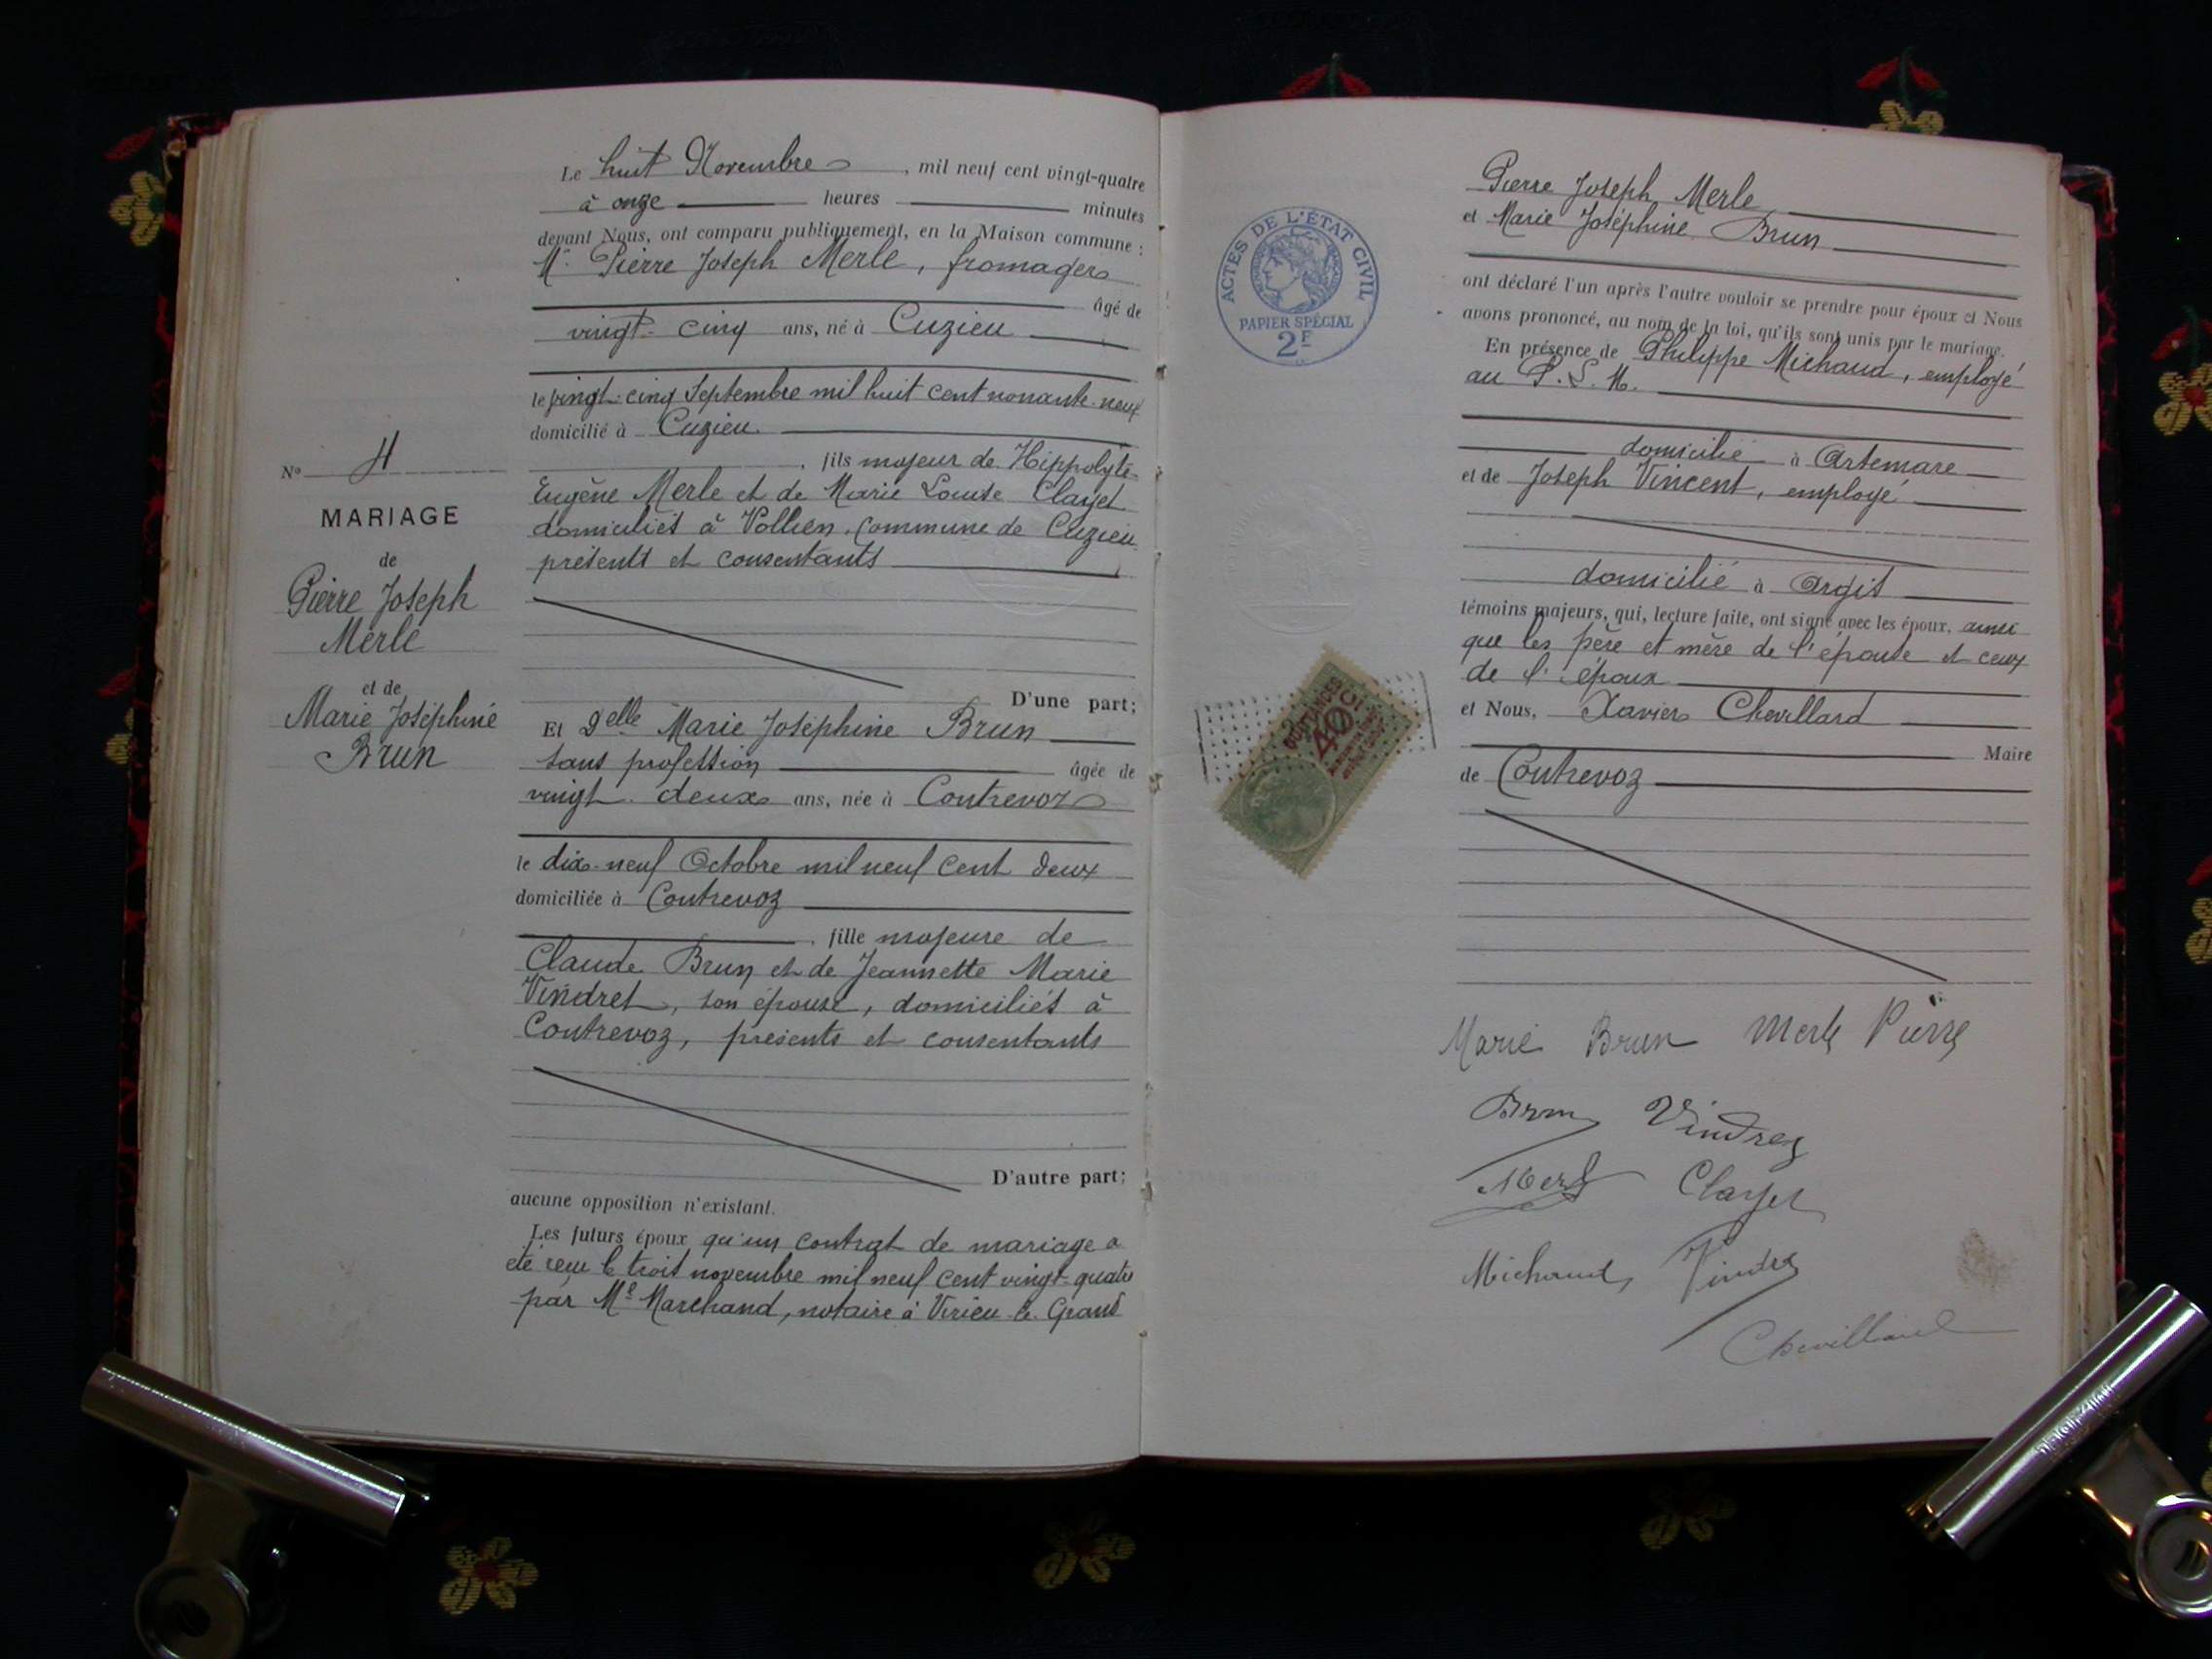 Le huit Novembre, mil neuf cent vingt-quatre
à onze heures minutes
devant Nous, ont comparu publiquement, en la Maison commune :
Mr Pierre Joseph Merle, fromager
âgé de
vingt-cinq ans, né à Cuzieu
le vingt-cinq Septembre mil huit cent nonante-neuf
domicilié à Cuzieu.
, fils majeur de Hippolyte
Eugène Merle et de Marie Louise Clayet
domiciliés à Vollien, commune de Cuzieu
présents et consentants
D'une part;
Et Delle Marie Joséphine Brun
sans profession âgée de
vingt-deux ans, née à Contrevoz
le dix-neuf Octobre mil neuf cent deux
domiciliée à Contrevoz
, fille majeure de
Claude Brun et de Jeannette Marie
Vindret, son épouse, domiciliés à
Contrevoz, présents et consentants
D'autre part;
aucune opposition n'existant.
Les futurs époux qu'un contrat de mariage a
été reçu le trois novembre mil neuf cent vingt-quatre
par Me Marchand, notaire à Virieu-le-Grand
No 4
MARIAGE
de
Pierre Joseph
Merle
et de
Marie Joséphine
Brun
ACTES DE L'ÉTAT CIVIL
PAPIER SPÉCIAL
2F
40
Pierre Joseph Merle
et Marie Joséphine Brun
ont déclaré l'un après l'autre vouloir se prendre pour époux et Nous
avons prononcé, au nom de la loi, qu'ils sont unis par le mariage.
En présence de Philippe Michaud, employé
au P.L.M.
domicilié à Artemare
et de Joseph Vincent, employé
domicilié à Argis
témoins majeurs, qui, lecture faite, ont signé avec les époux, ainsi
que les père et mère de l'épouse et ceux
de l'époux
et Nous, Xavier Chevillard
Maire
de Contrevoz
Marie Brun Merle Pierre
Brun Vindret
Merle Clayet
Michaud
Chevillard